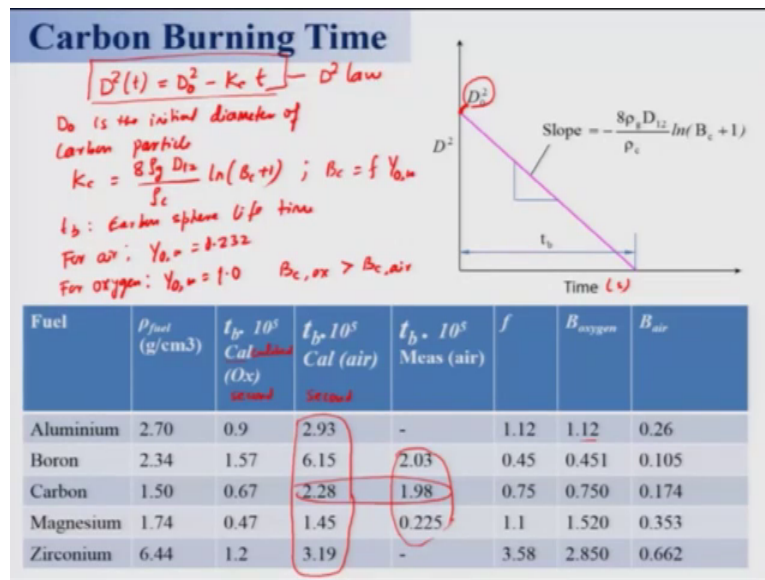 Carbon Burning Time
D²(t) = D₀² - Kc t — D² law
D₀ is the initial diameter of
Carbon particle
Kc = 8 ρg D12 / ρc ln(Bc+1) ; Bc = f Y0,∞
tb : Carbon sphere life time
For air : Y0,∞ = 0.232
For oxygen : Y0,∞ = 1.0 Bc,ox > Bc,air
D₀²
D²
Slope = - 8ρgD12 / ρc ln(Bc + 1)
tb
Time (s)
Fuel ρfuel (g/cm3) tb. 10⁵ Calculated (Ox) second tb. 10⁵ Cal (air) second tb. 10⁵ Meas (air) f Boxygen Bair
Aluminium 2.70 0.9 2.93 - 1.12 1.12 0.26
Boron 2.34 1.57 6.15 2.03 0.45 0.451 0.105
Carbon 1.50 0.67 2.28 1.98 0.75 0.750 0.174
Magnesium 1.74 0.47 1.45 0.225 1.1 1.520 0.353
Zirconium 6.44 1.2 3.19 - 3.58 2.850 0.662